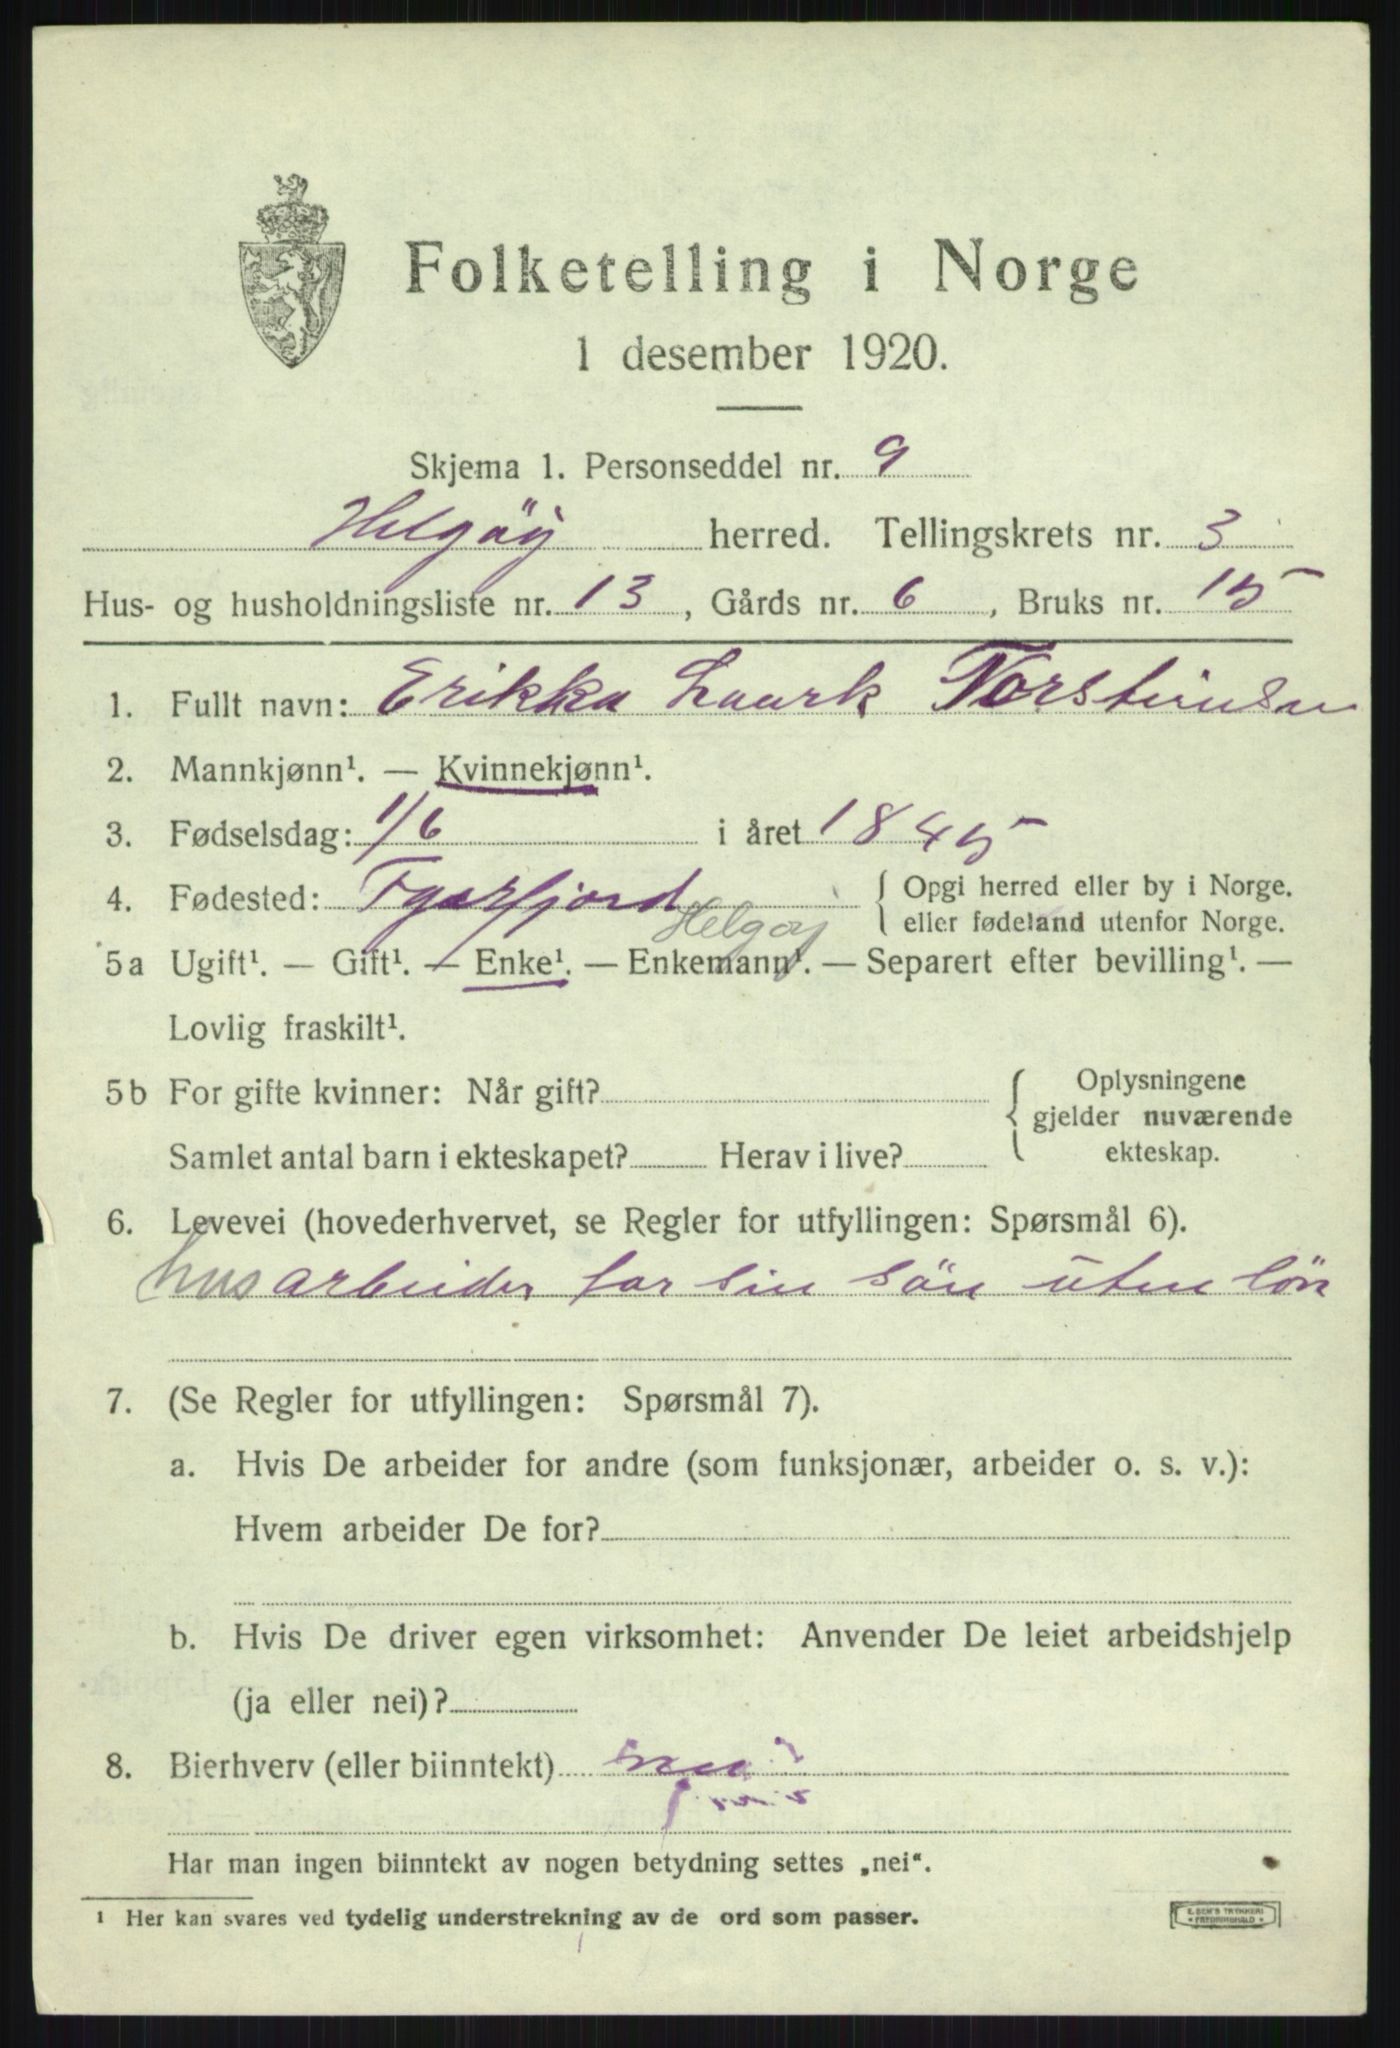 Folketelling i Norge
1 desember 1920.
Skjema 1. Personseddel nr. 9
Helgøy herred. Tellingskrets nr. 3
Hus- og husholdningsliste nr. 13, Gårds nr. 6, Bruks nr. 15
1. Fullt navn: Erikka Laurk Torstensen
2. Mannkjønn¹. — Kvinnekjønn¹.
3. Fødselsdag: 1/6 i året 1845
4. Fødested: { Opgi herred eller by i Norge.
Helgøy eller fødeland utenfor Norge.
5a Ugift¹. — Gift¹. — Enke¹. — Enkemann¹. — Separert efter bevilling¹. —
Lovlig fraskilt¹.
5b For gifte kvinner: Når gift? { Oplysningene
gjelder nuværende
Samlet antal barn i ekteskapet? Herav i live? ekteskap.
6. Levevei (hovederhvervet, se Regler for utfyllingen: Spørsmål 6).
husarbeider for sin søn uten løn
7. (Se Regler for utfyllingen: Spørsmål 7).
a. Hvis De arbeider for andre (som funksjonær, arbeider o. s. v.):
Hvem arbeider De for?
b. Hvis De driver egen virksomhet: Anvender De leiet arbeidshjelp
(ja eller nei)?
8. Bierhverv (eller biinntekt)
Har man ingen biinntekt av nogen betydning settes „nei“.
¹ Her kan svares ved tydelig understrekning av de ord som passer.
E. SEM'S TRYKKERI
FREDRIKSHALD